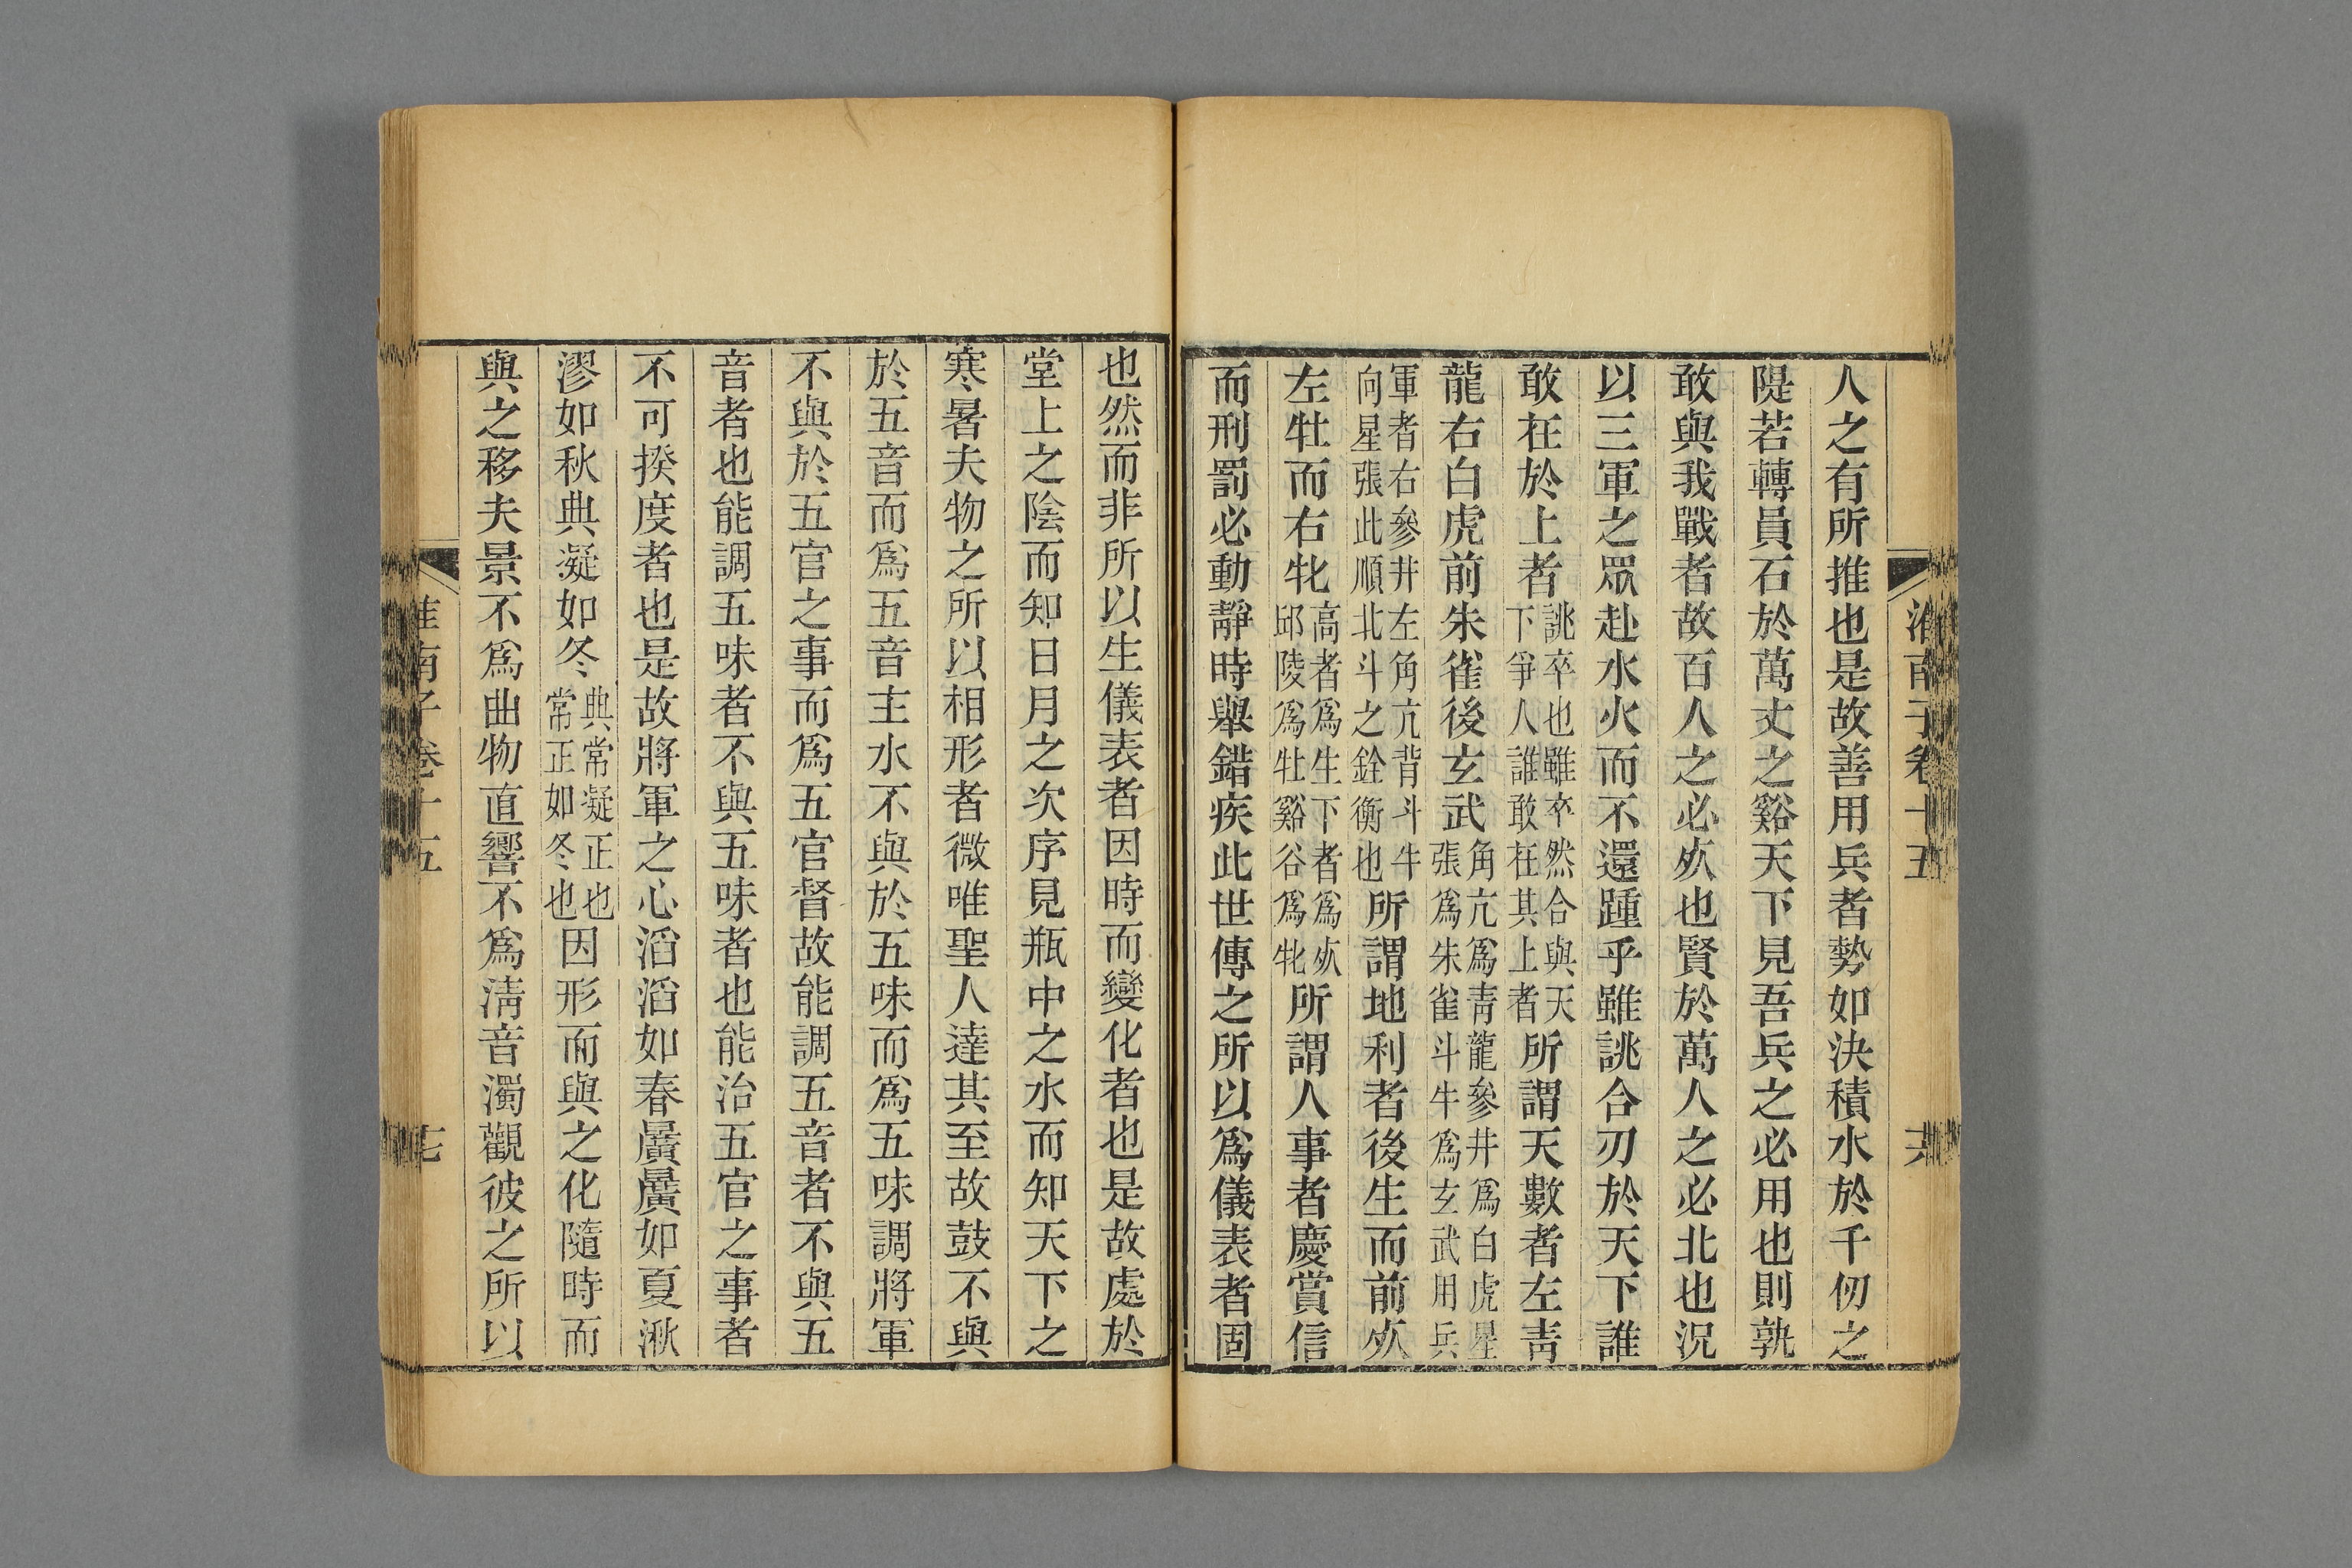 淮南子卷十五 十六
人之有所推也是故善用兵者勢如決積水於千仞之
隄若轉員石於萬丈之谿天下見吾兵之必用也則孰
敢與我戰者故百人之必㱥也賢於萬人之必北也況
以三軍之眾赴水火而不還踵乎雖誂合刃於天下誰
敢在於上者誂卒也雖卒然合與天下爭人誰敢在其上者所謂天數者左青
龍右白虎前朱雀後玄武角亢爲青龍參井爲白虎星張爲朱雀斗牛爲玄武用兵
軍者右參井左角亢背斗牛向星張此順北斗之銓衡也所謂地利者後生而前㱥
左牡而右牝高者爲生下者爲㱥邱陵爲牡谿谷爲牝所謂人事者慶賞信
而刑罰必動靜時舉錯疾此世傳之所以爲儀表者固
也然而非所以生儀表者因時而變化者也是故處於
堂上之陰而知日月之次序見瓶中之水而知天下之
寒暑夫物之所以相形者微唯聖人達其至故鼓不與
於五音而爲五音主水不與於五味而爲五味調將軍
不與於五官之事而爲五官督故能調五音者不與五
音者也能調五味者不與五味者也能治五官之事者
不可揆度者也是故將軍之心滔滔如春曠曠如夏湫
漻如秋典凝如冬典常凝正也常正如冬也因形而與之化隨時而
與之移夫景不爲曲物直響不爲清音濁觀彼之所以
淮南子卷十五 十七